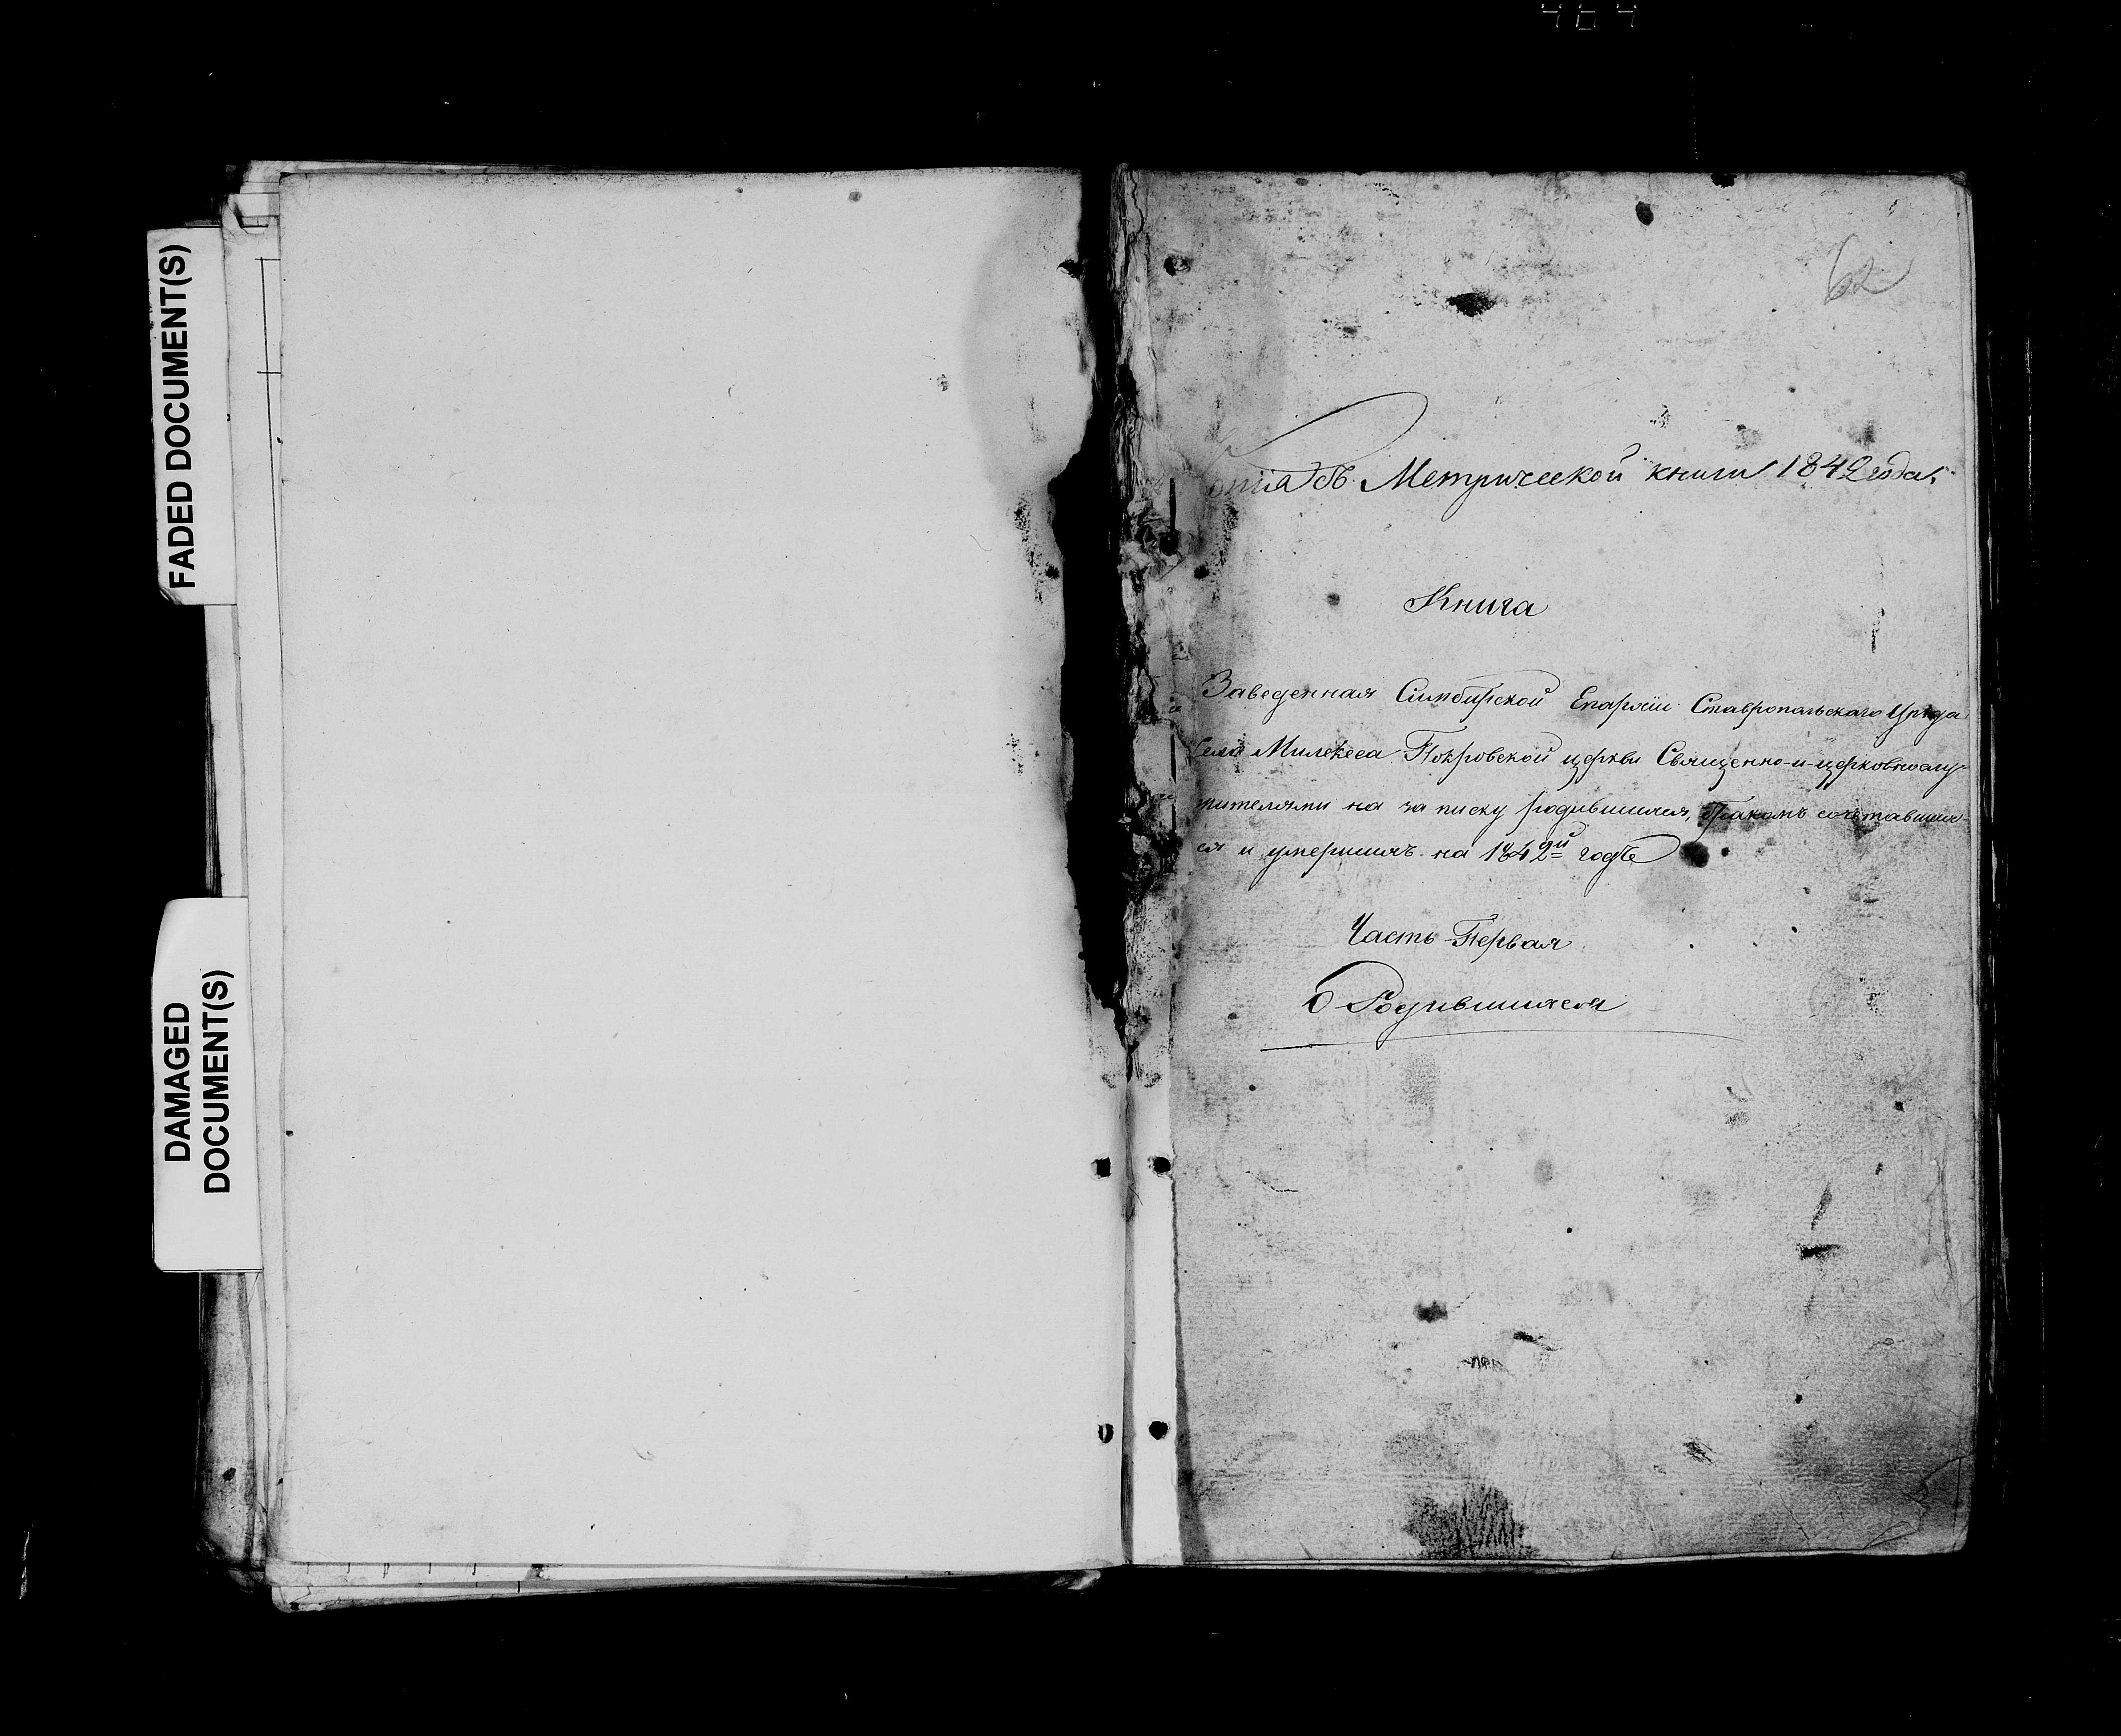 464
FADED DOCUMENT(S)
DAMAGED
DOCUMENT(S)
62
опия съ Метрической книги 1842 года.
Книга
Заведенная Симбирской Епархіи Ставропольскаго Уѣзда
села Мелекеса Покровской церкви Священно-и-церковнослу-
жителями на записку родившихся, бракомъ сочетавших-
ся и умершихъ на 1842й годъ
Часть Первая
О Родившихся